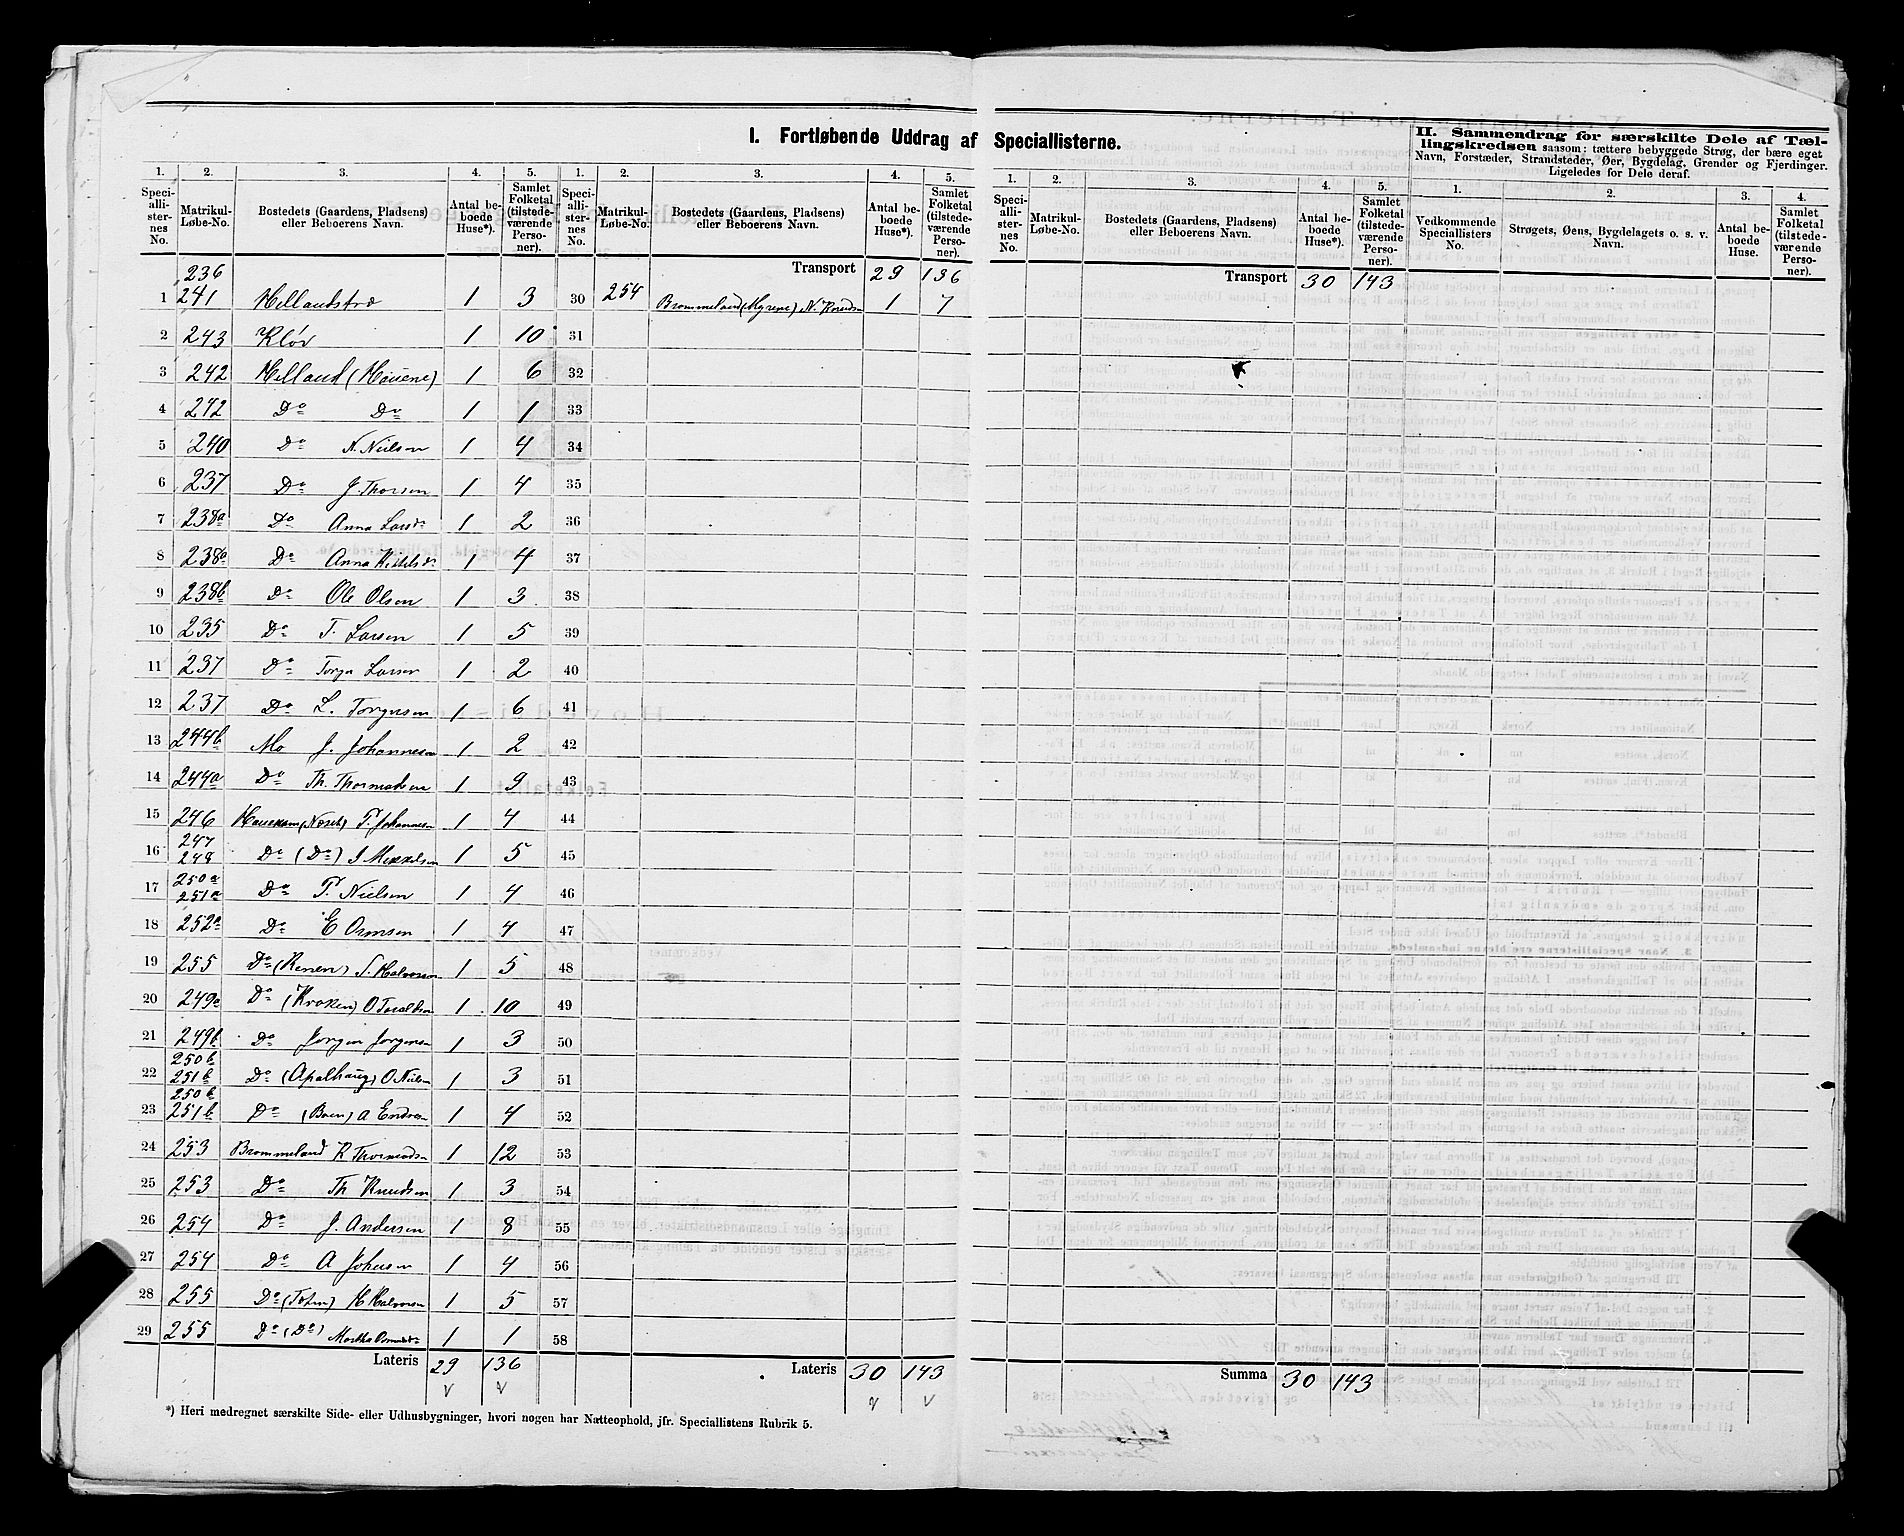 I. Fortløbende Uddrag af Speciallisterne.
1. 2. 3. 4. 5.
Speciallisternes No. Matrikul-Løbe-No. Bostedets (Gaardens, Pladsens) eller Beboerens Navn. Antal beboede Huse*). Samlet Folketal (tilstedeværende Personer).
236
1 241 Hellandstræ 1 3
2 243 Kløv 1 10
3 242 Helland (Hauene) 1 6
4 242 Do Do 1 1
5 240 Do N. Nielsen 1 4
6 237 Do J. Thorsen 1 4
7 238a Do Anna Larsdr 1 2
8 238a Do Anna Kittelsdr 1 4
9 238b Do Ole Olsen 1 3
10 235 Do T. Larsen 1 5
11 237 Do Torger Larsen 1 2
12 237 Do L. Torgersen 1 6
13 244b Mo J. Johannesen 1 2
14 244a Do Th. Thormodsen 1 9
15 246 T. Johannesen 1 4
247
16 248 Do (Do) J Mikkelsen 1 5
250a
17 251a Do T. Nielsen 1 4
18 252a Do E Ormsen 1 4
19 255 Do (Renen) S. Halvorsen 1 5
20 249a Do (Kroken) O Toraldsen 1 10
21 249b Do Jørgen Jørgensen 1 3
250b
22 251b Do (Apalhaug) O Nielsen 1 3
250b
23 251b Do (Boen) A Endresen 1 4
24 253 Brommeland K Thormodsen 1 12
25 253 Do Th Knudsen 1 3
26 254 Do J. Andersen 1 8
27 254 Do A Johnsen 1 4
28 255 Do (Toten) H Halvorsen 1 5
29 255 Do (Do) Martha 1 1
Lateris 29 136
1. 2. 3. 4. 5.
Speciallisternes No. Matrikul-Løbe-No. Bostedets (Gaardens, Pladsens) eller Beboerens Navn. Antal beboede Huse*). Samlet Folketal (tilstedeværende Personer).
Transport 29 136
30 254 Brommeland (Myrene) N. Knudsen 1 7
31
32
33
34
35
36
37
38
39
40
41
42
43
44
45
46
47
48
49
50
51
52
53
54
55
56
57
58
Lateris 30 143
*) Heri medregnet særskilte Side- eller Udhusbygninger, hvori nogen har Natteophold, jfr. Speciallistens Rubrik 5.
1. 2. 3. 4. 5.
Speciallisternes No. Matrikul-Løbe-No. Bostedets (Gaardens, Pladsens) eller Beboerens Navn. Antal beboede Huse*). Samlet Folketal (tilstedeværende Personer).
Transport 30 143
Summa 30 143
II. Sammendrag for særskilte Dele af Tællingskredsen saasom: tættere bebyggede Strøg, der bære eget
Navn, Forstæder, Strandsteder, Øer, Bygdelag, Grender og Fjerdinger.
Ligeledes for Dele deraf.
1. 2. 3. 4.
Vedkommende Speciallisters No. Strøgets, Øens, Bygdelagets o. s. v. Navn. Antal beboede Huse. Samlet Folketal (tilstedeværende Personer).